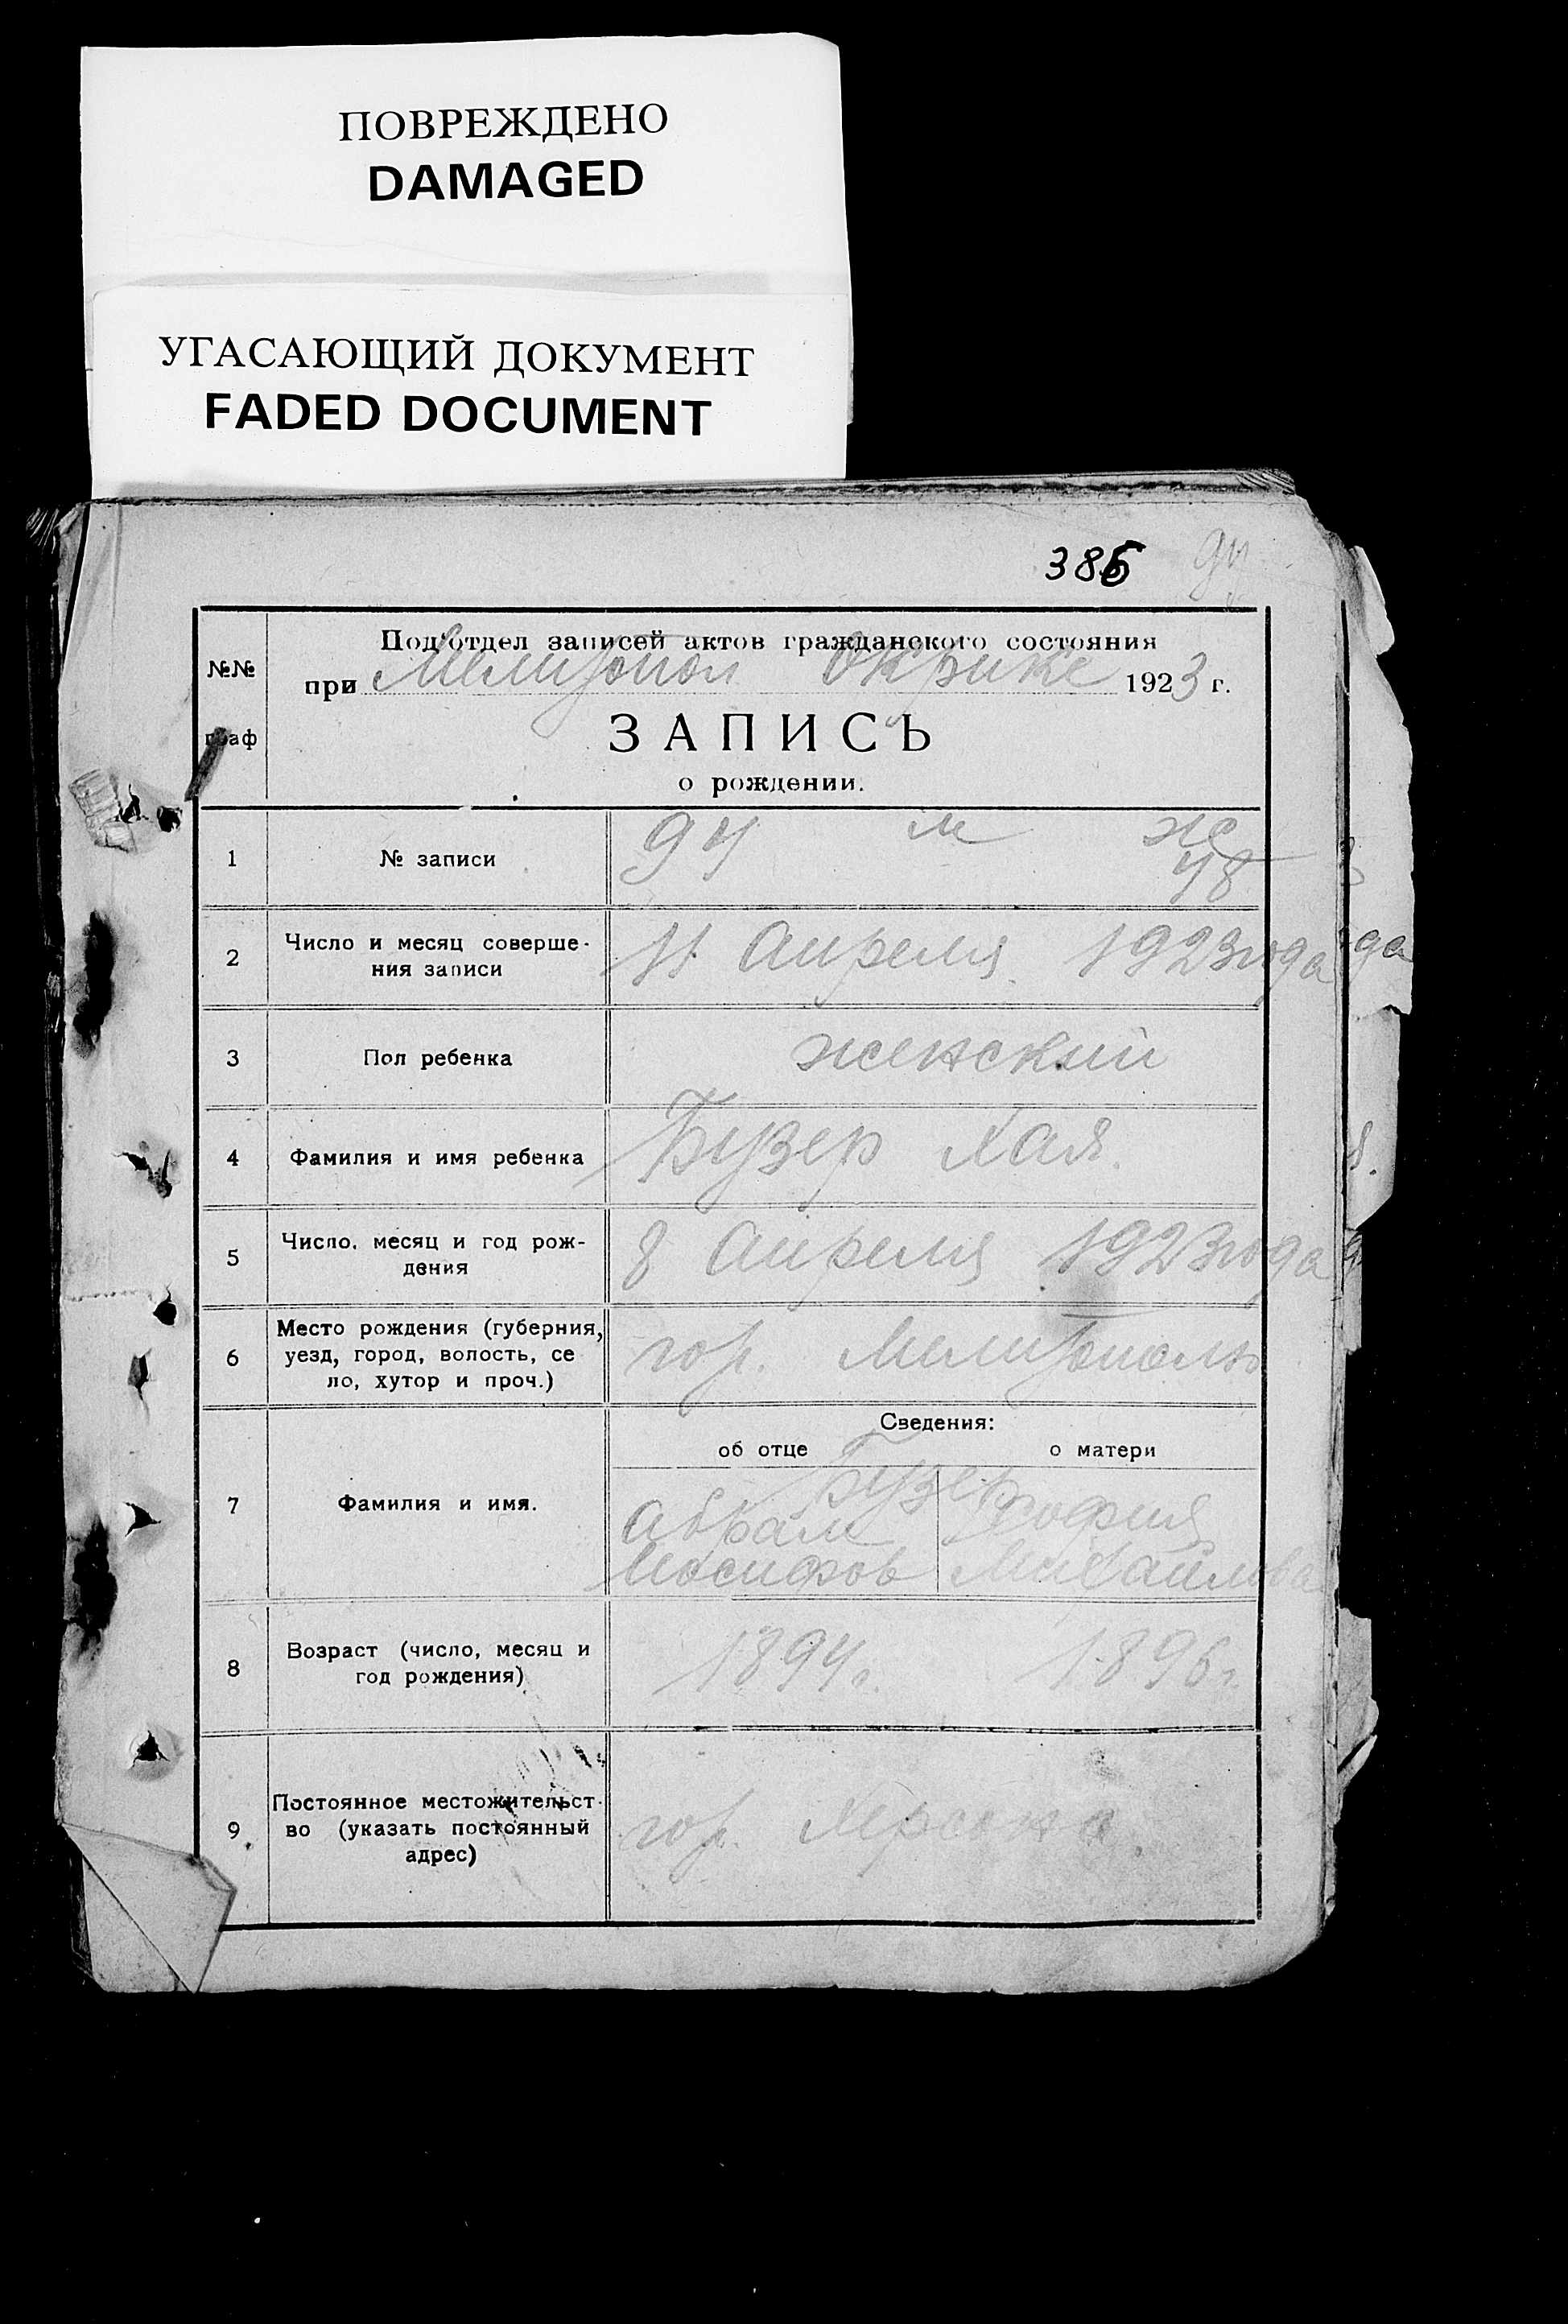 ПОВРЕЖДЕНО
DAMAGED
УГАСАЮЩИЙ ДОКУМЕНТ
FADED DOCUMENT
386
Под'отдел записей актов гражданского состояния
№№
при Мелитопол Окрике 1923 г.
граф
ЗАПИСЬ
о рождении.
1 № записи 94 м ж
48
2 Число и месяц соверше-
ния записи 11 Апреля 1923 года
3 Пол ребенка женский
4 Фамилия и имя ребенка Бузер Хая
5 Число, месяц и год рож-
дения 8 Апреля 1923 года
6 Место рождения (губерния,
уезд, город, волость, се
ло, хутор и проч.) гор. Мелитополь
Сведения:
об отце о матери
7 Фамилия и имя. Бузер
Абрам София
Иосифов Михайлова
8 Возраст (число, месяц и
год рождения) 1894 г. 1896 г.
9 Постоянное местожительст-
во (указать постоянный
адрес) гор. Херсона.